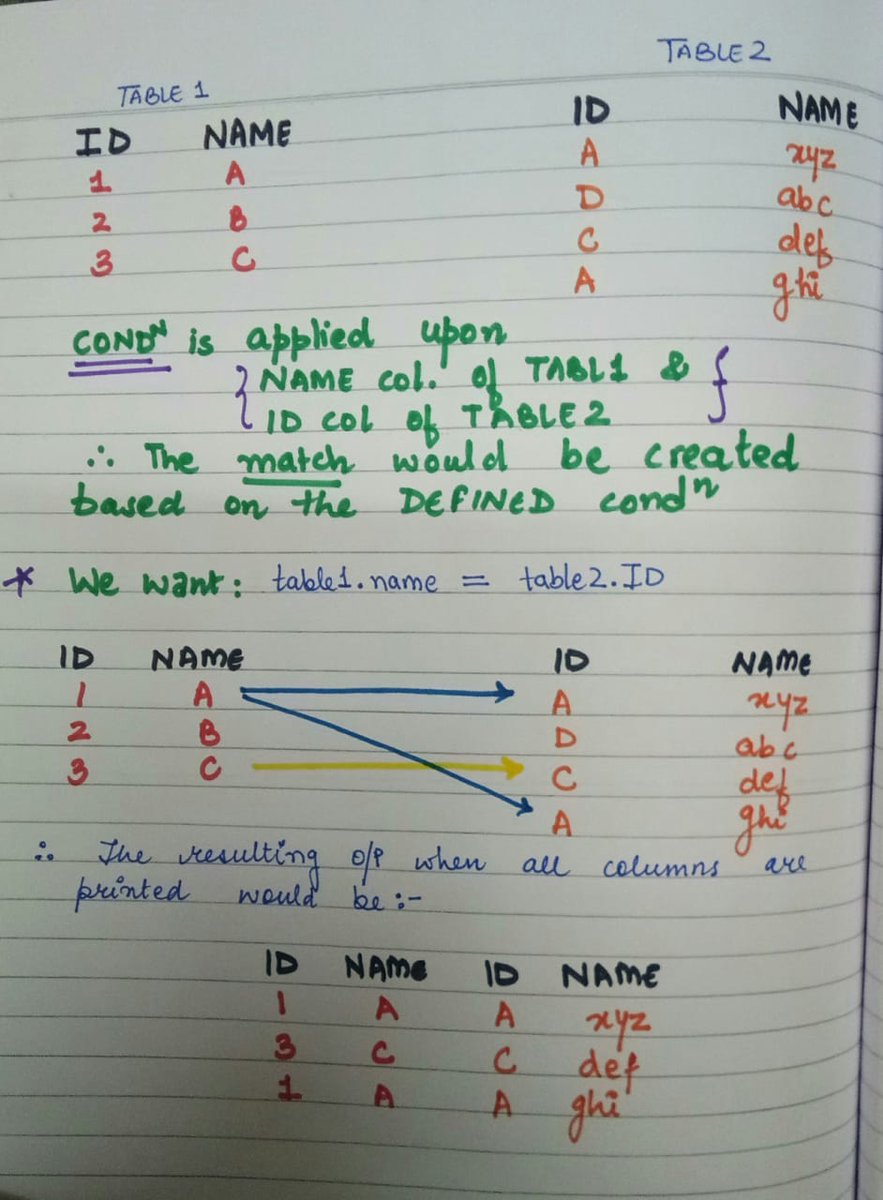 TABLE 1 TABLE 2
ID NAME ID NAME
1 A A xyz
2 B D abc
3 C C def
A ghi
CONDN is applied upon
{ NAME col. of TABL1 & }
ID col of TABLE2
∴ The match would be created
based on the DEFINED condn
* We want: table1.name = table2.ID
ID NAME ID NAME
1 A A xyz
2 B D abc
3 C C def
A ghi
∴ The resulting o/p when all columns are
printed would be:-
ID NAME ID NAME
1 A A xyz
3 C C def
1 A A ghi